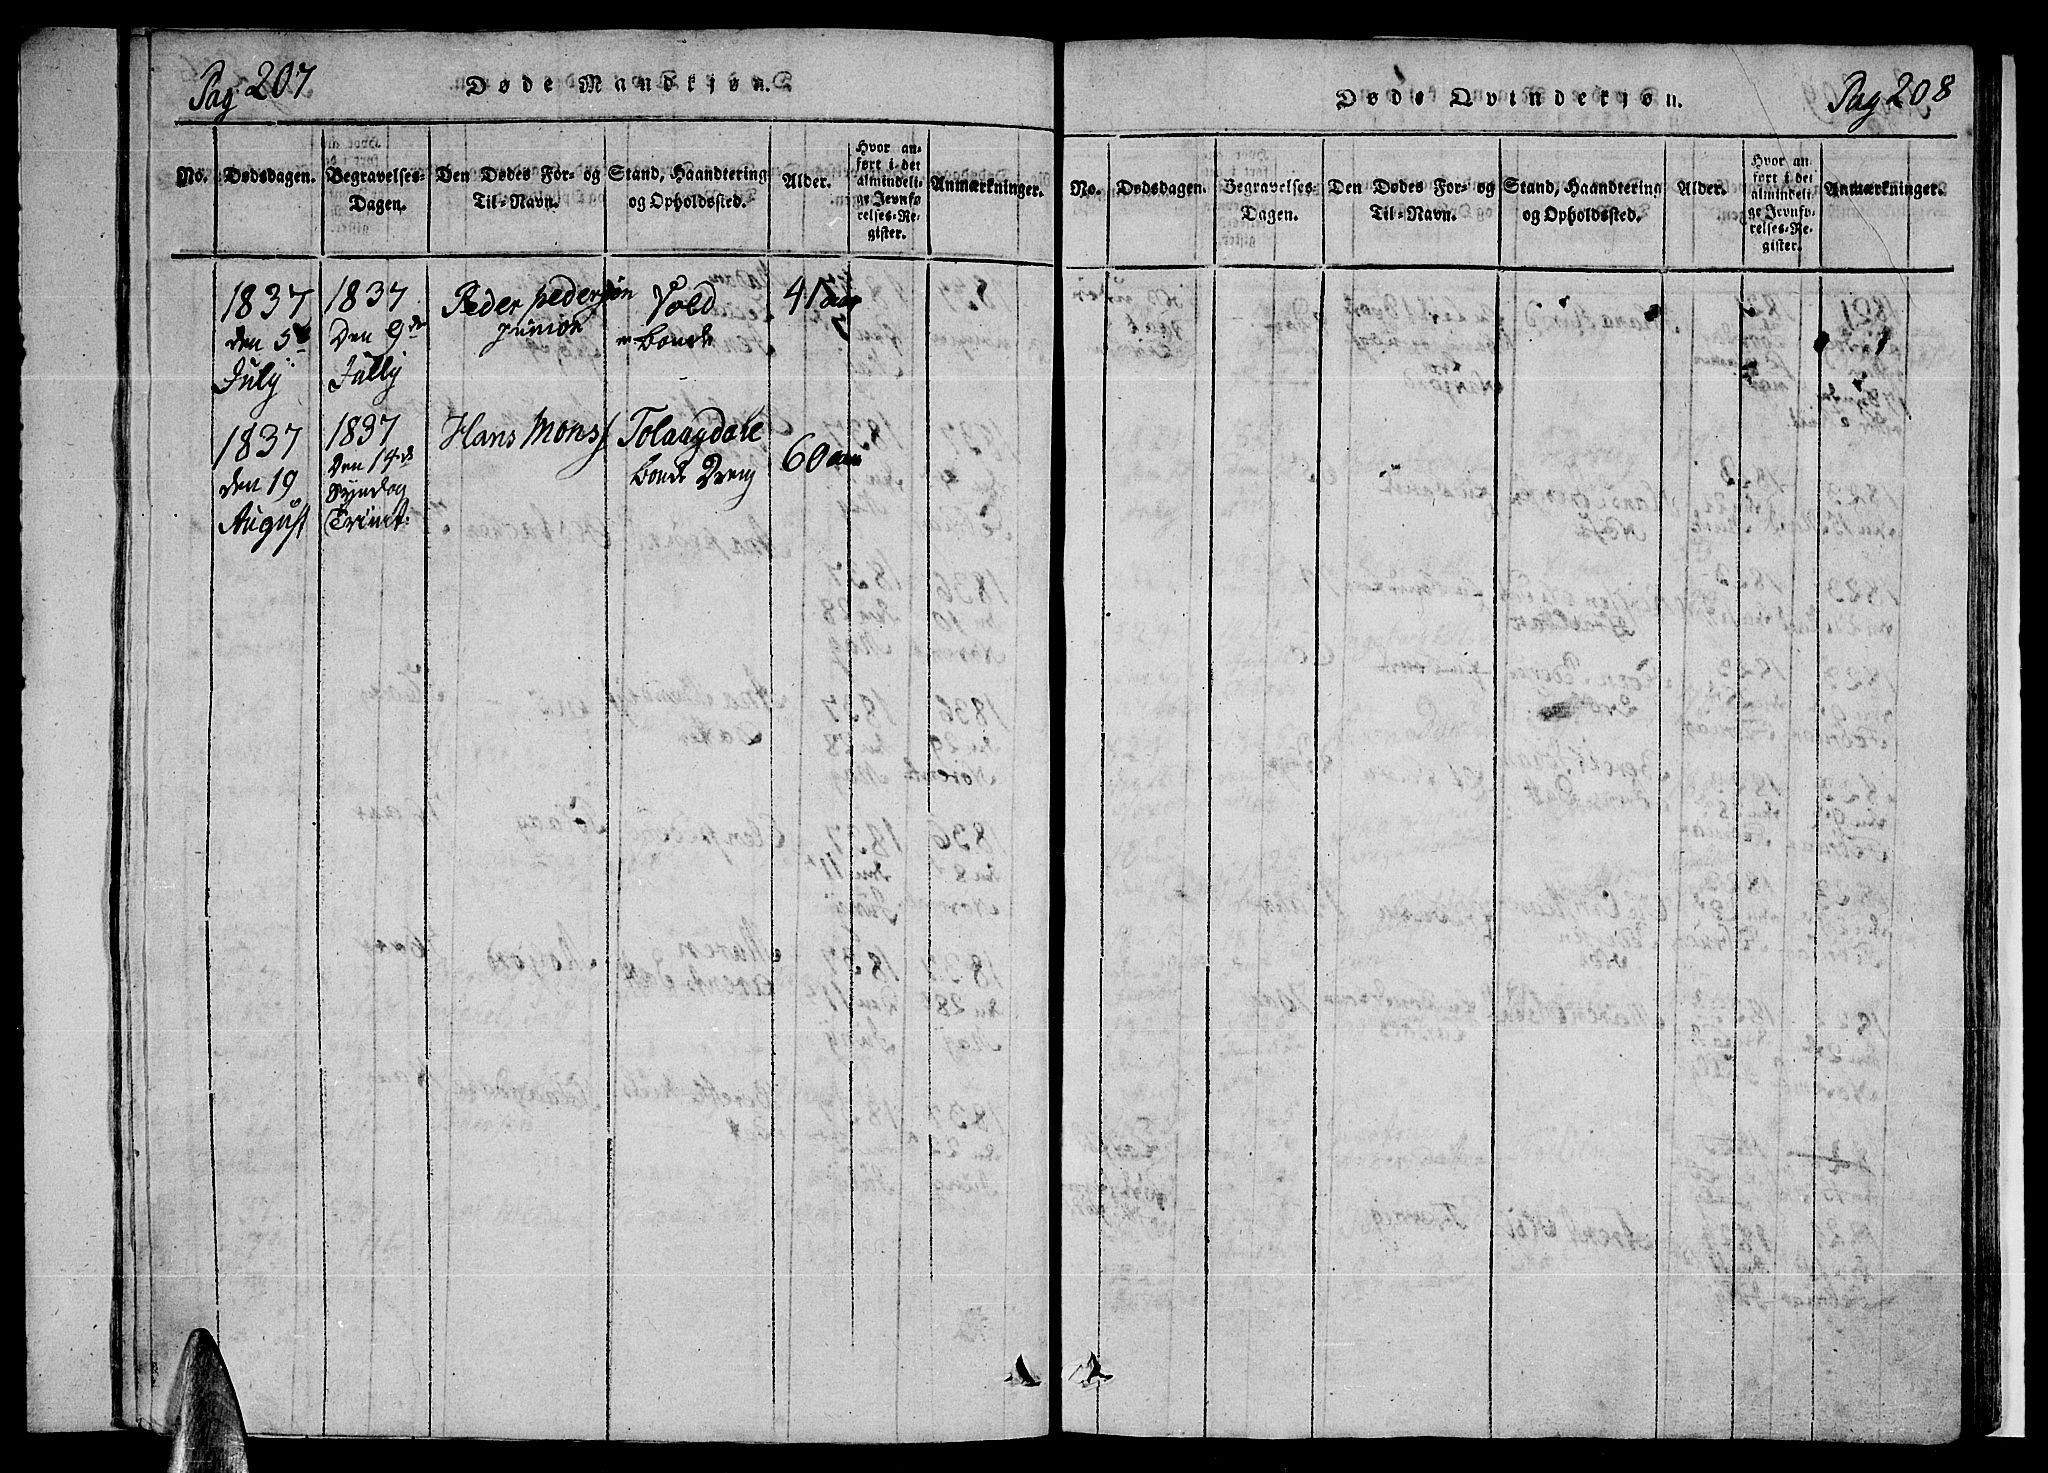 Pag 207
Døde Mandkiøn.
No.
Dødsdagen.
Begravelses-
Dagen.
Den Dødes For- og
Til-Navn.
Stand, Haandtering
og Opholdssted.
Alder.
Hvor an-
ført i det
almindeli-
ge Jevnfø
relses-Re-
gister.
Anmærkninger.
1837
den 5te
July
1837
Den 9de
Jully
Peder pedersøn
junior
Vold
bonde
41 aar
1837
den 19
August
1837
Den 14de
Syndag
Trinit:
Hans Mons
Tolaagdale
bonde Dreng
60 aar
Pag 208
Døde Qvindekiøn.
No.
Dødsdagen.
Begravelses-
Dagen.
Den Dødes For- og
Til-Navn.
Stand, Haandtering
og Opholdssted.
Alder.
Hvor an
ført i det
almindeli
ge Jevnfø-
relses-Re-
gister.
Anmærkninger.